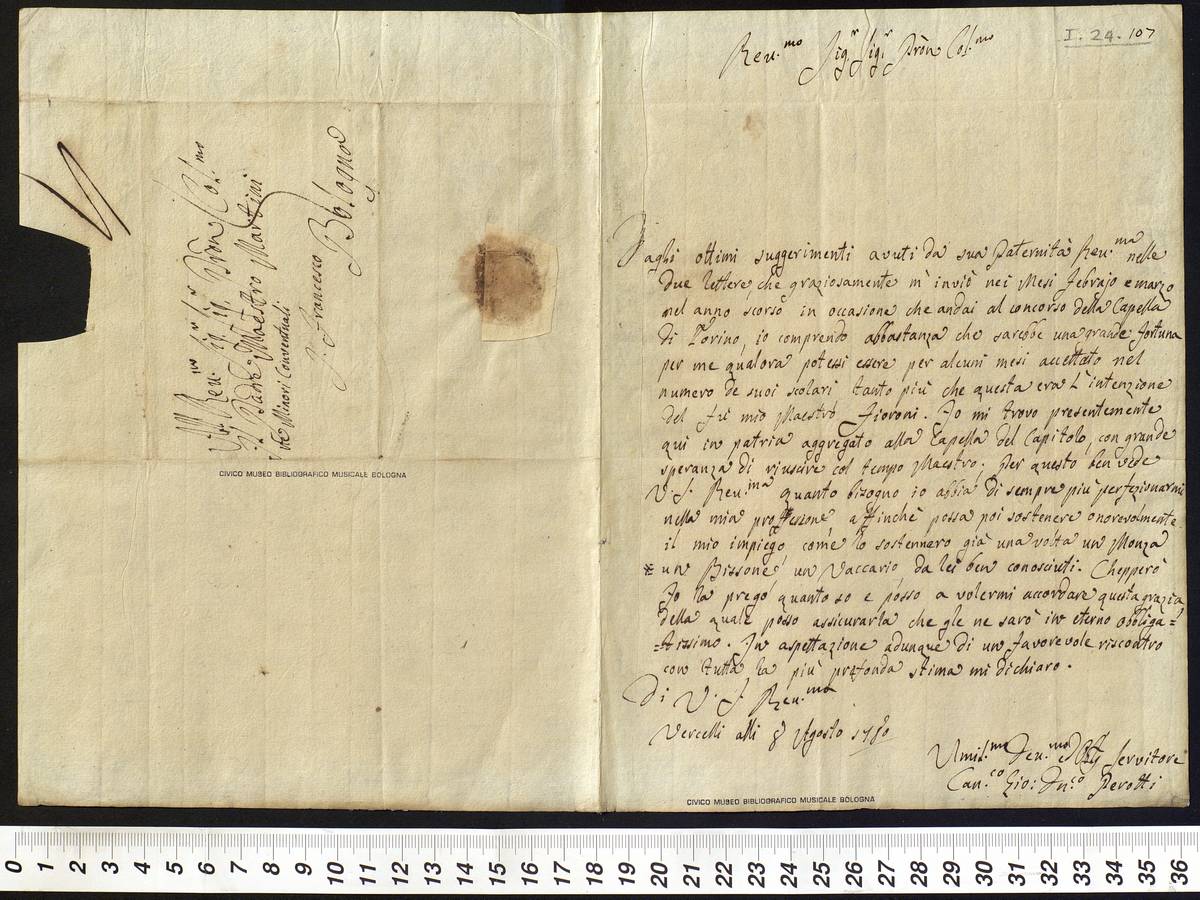 I. 24. 107
Rev.mo Sig.r Sig.r Pròn Col.mo
Daghi ottimi suggerimenti avuti da sua Paternità Rev.ma nelle
due lettere, che graziosamente m'inviò nei Mesi febrajo e marzo
nel anno scorso in occasione che andai al concorso della Capella
di Torino, io comprendo abbastanza che sarebbe una grande fortuna
per me qualora potessi essere per alcuni mesi accettato nel
numero de suoi scolari tanto più che questa era l'intenzione
del fù mio Maestro Fioroni. Io mi trovo presentemente
qui in patria aggregato alla Capella del Capitolo, con grande
speranza di riuscire col tempo Maestro; Per questo ben vede
V. S. Rev.ma quanto bisogno io abbia di sempre più perfezionarmi
nella mia professione affinchè possa poi sostenere onorevolmente
il mio impiego, come lo sostennero già una volta un Monza
un Bissone, un Vaccario, da lei ben conosciuti. Chepperò
Io la prego quanto so e posso a volermi accordare questa grazia
della quale posso assicurarla che gle ne sarò in eterno obbliga=
=tissimo. In aspettazione adunque di un favorevole riscontro
con tutta la più profonda stima mi dichiaro.
Di V. S. Rev.ma
Vercelli alli 8 Agosto 1780
Umil.mo Dev.mo Servitore
Can.co Gio: Dn.co Perotti
CIVICO MUSEO BIBLIOGRAFICO MUSICALE BOLOGNA
Al Rev.mo Sig.r Sig.r Pròn Col.mo
Il Padre Maestro Martini
de Minori Conventuali
S. Francesco
Bologna
CIVICO MUSEO BIBLIOGRAFICO MUSICALE BOLOGNA
0 1 2 3 4 5 6 7 8 9 10 11 12 13 14 15 16 17 18 19 20 21 22 23 24 25 26 27 28 29 30 31 32 33 34 35 36